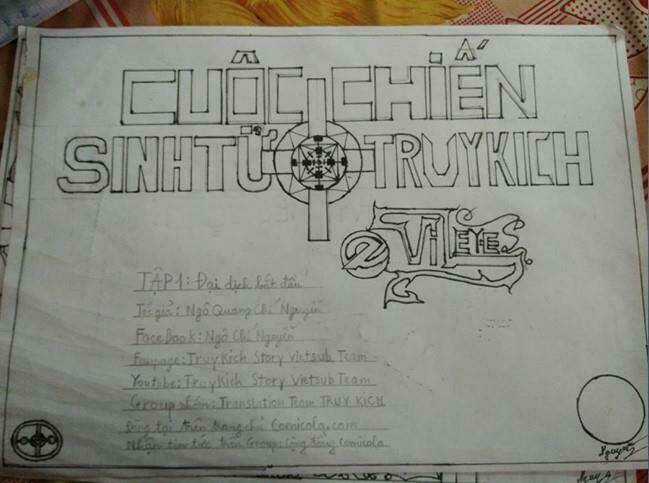 CUỘC CHIẾN
SINH TỬ TRUY KÍCH
EYES
TẬP 1: Đại dịch bắt đầu
Tác giả: Ngô Quang Chí Nguyễn
FaceBook: Ngô Chí Nguyễn
Fanpage: Truy Kích Story Vietsub Team
Youtube: Truy Kích Story Vietsub Team
Group nhóm: Translation Team TRUY KÍCH
Đăng tại trên trang chủ Comicola.com
Nhận tin tức trên Group: Cộng đồng Comicola